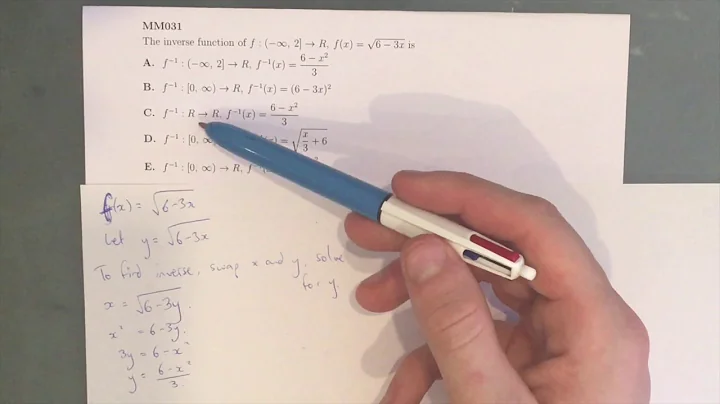 MM031
The inverse function of f : (−∞, 2] → R, f(x) = √(6 − 3x) is
A. f⁻¹ : (−∞, 2] → R, f⁻¹(x) = (6 − x²)/3
B. f⁻¹ : [0, ∞) → R, f⁻¹(x) = (6 − 3x)²
C. f⁻¹ : R → R, f⁻¹(x) = (6 − x²)/3
D. f⁻¹ : [0, ∞) = √(x/3 + 6)
E. f⁻¹ : [0, ∞) → R, f⁻¹
f(x) = √(6-3x)
Let y = √(6-3x)
To find inverse, swap x and y, solve
for y.
x = √(6-3y).
x² = 6-3y.
3y = 6-x²
y = (6-x²)/3.